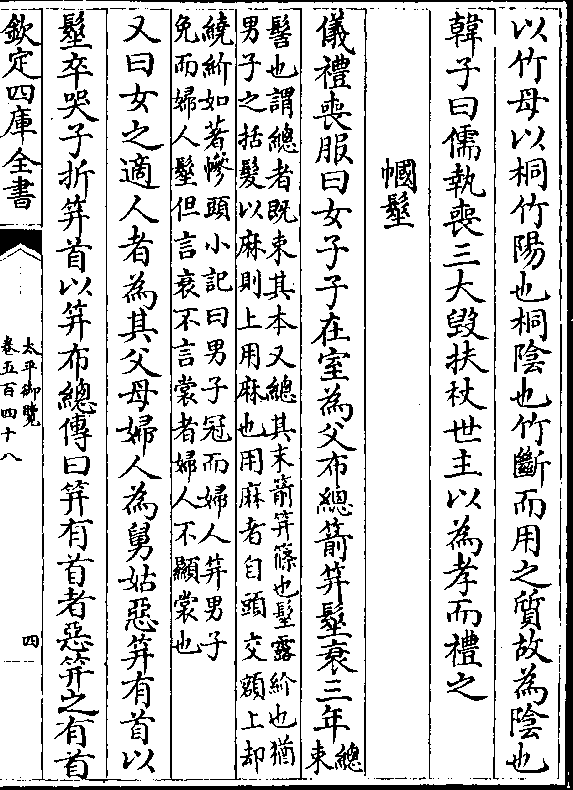 以竹母以桐竹陽也桐陰也竹斷而用之質故為陰也
韓子曰儒執喪三大毀扶杖世主以為孝而禮之
幗髽
儀禮喪服曰女子子在室為父布總箭笄髽衰三年總束
髻也謂總者既束其本又總其末箭笄篠也髽露紒也猶
男子之括髮以麻則上用麻也用麻者自頭交額上却
繞紒如著幓頭小記曰男子冠而婦人笄男子
免而婦人髽但言衰不言裳者婦人不顯裳也
又曰女之適人者為其父母婦人為舅姑惡笄有首以
髽卒哭子折笄首以笄布總傳曰笄有首者惡笄之有首
欽定四庫全書
太平御覽
卷五百四十八
四